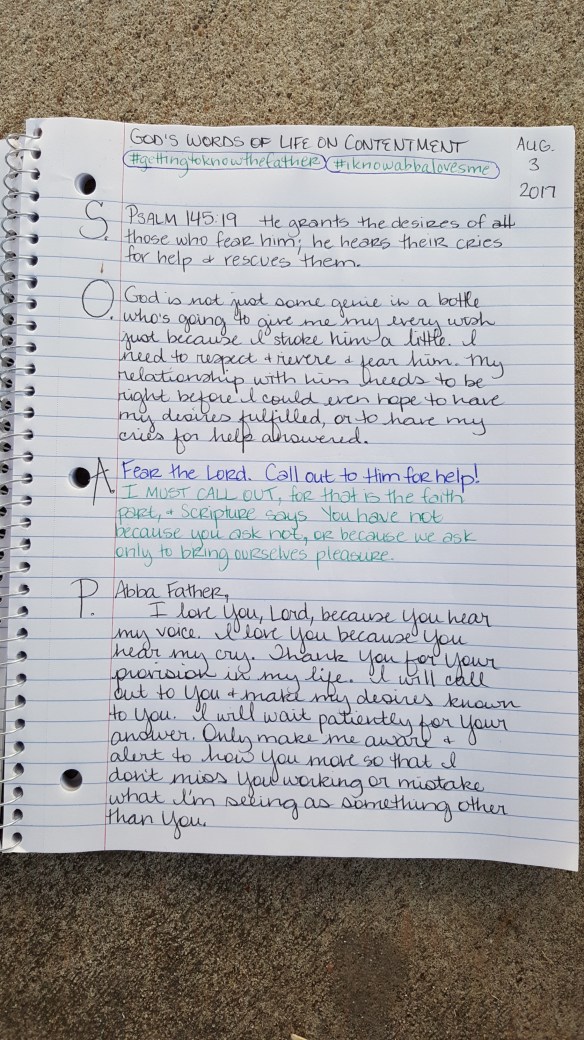 GOD'S WORDS OF LIFE ON CONTENTMENT
AUG. 3 2017
#gettingtoknowthefather #iknowabbalovesme
S. PSALM 145:19 He grants the desires of all
those who fear him; he hears their cries
for help & rescues them.
O. God is not just some genie in a bottle
who's going to give me my every wish
just because I stroke him a little. I
need to respect & revere & fear him. My
relationship with him needs to be
right before I could even hope to have
my desires fulfilled, or to have my
cries for help answered.
A. Fear the Lord. Call out to Him for help!
I MUST CALL OUT, for that is the faith
part, & Scripture says You have not
because you ask not, or because we ask
only to bring ourselves pleasure.
P. Abba Father,
I love You, Lord, because You hear
my voice. I love You because You
hear my cry. Thank You for Your
provision in my life. I will call
out to You & make my desires known
to You. I will wait patiently for Your
answer. Only make me aware &
alert to how You move so that I
don't miss You working or mistake
what I'm seeing as something other
than You.